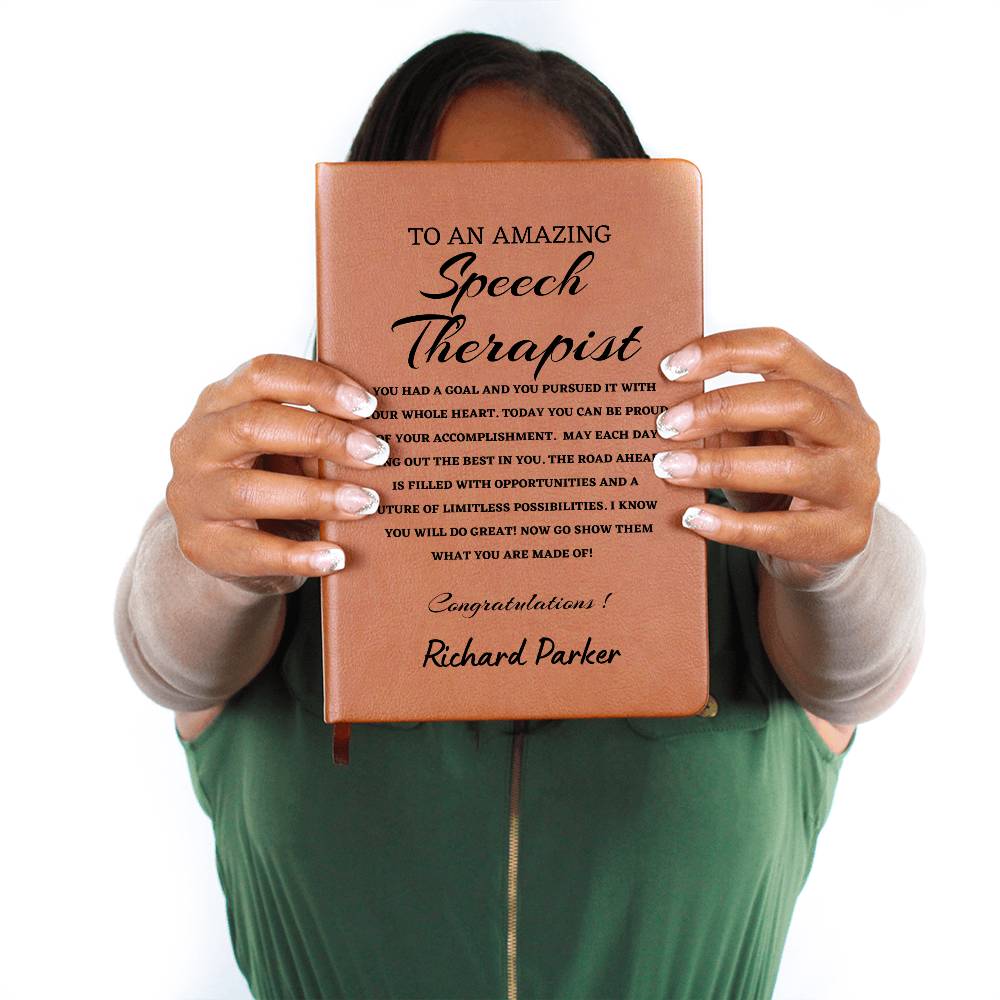 TO AN AMAZING
Speech
Therapist
YOU HAD A GOAL AND YOU PURSUED IT WITH
YOUR WHOLE HEART. TODAY YOU CAN BE PROUD
OF YOUR ACCOMPLISHMENT. MAY EACH DAY
OUT THE BEST IN YOU. THE ROAD AHEAD
IS FILLED WITH OPPORTUNITIES AND A
FUTURE OF LIMITLESS POSSIBILITIES. I KNOW
YOU WILL DO GREAT! NOW GO SHOW THEM
WHAT YOU ARE MADE OF!
Congratulations !
Richard Parker